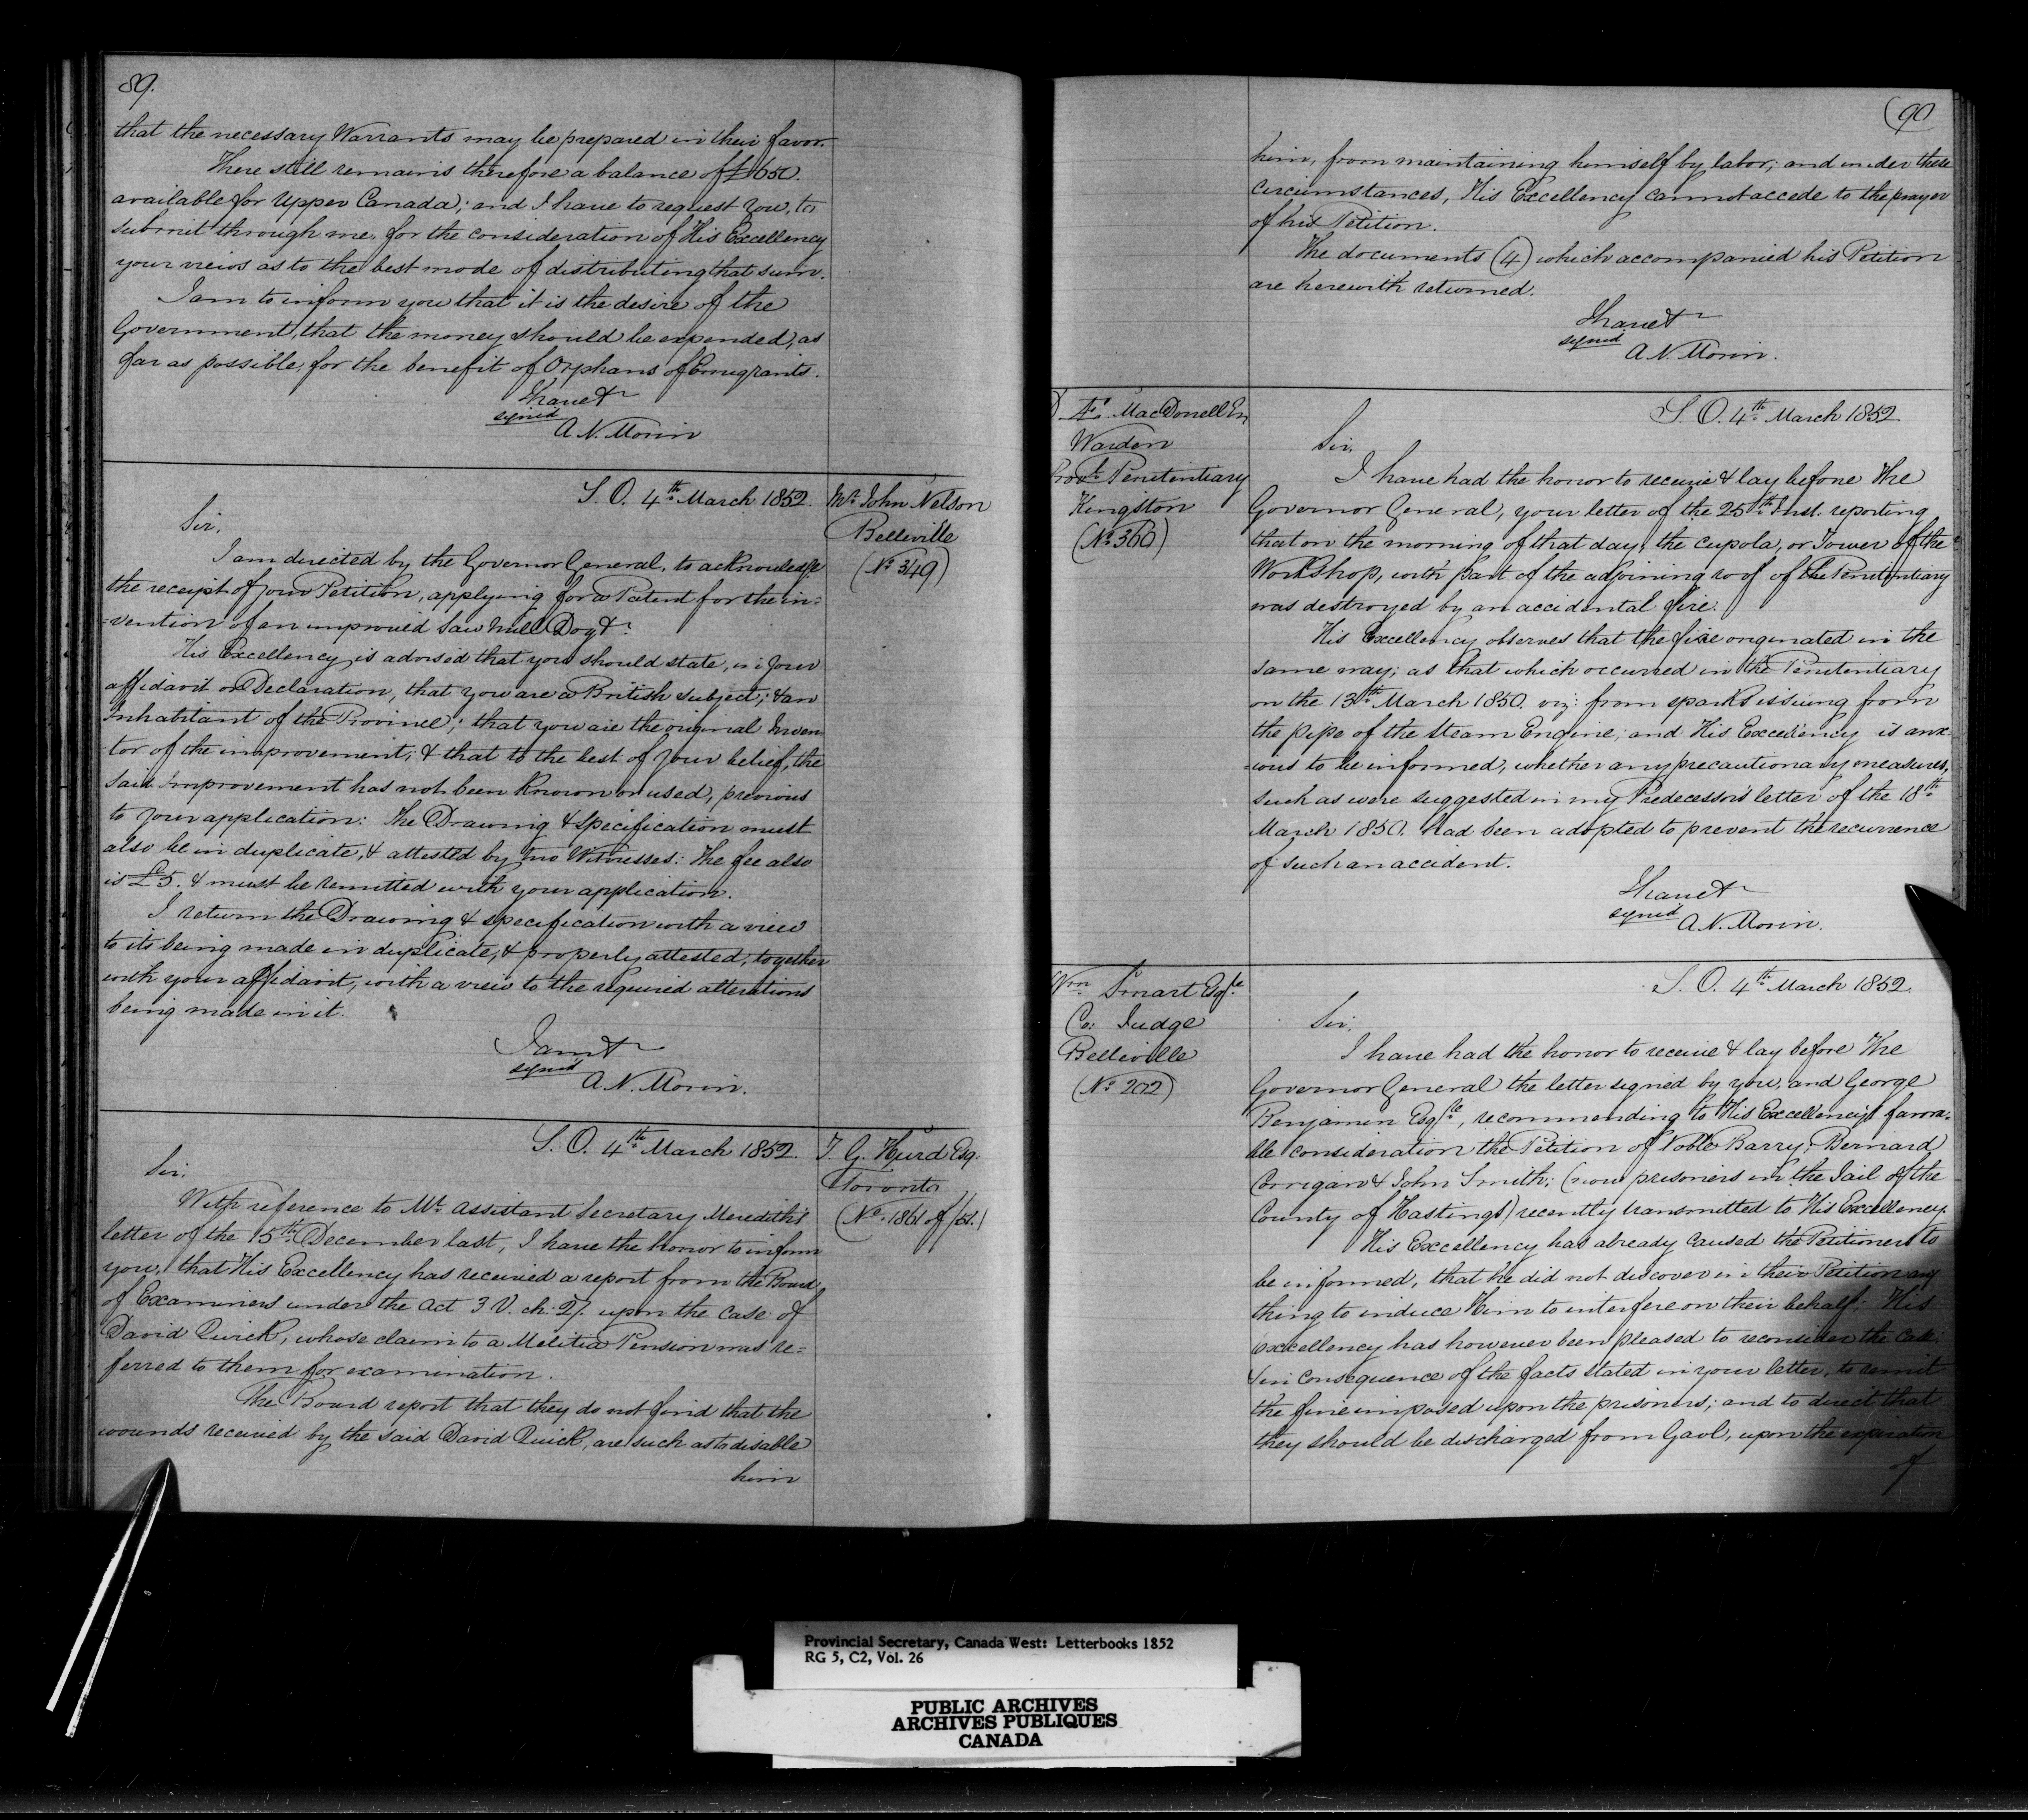 89.
that the necessary Warrants may be prepared in their favor.
There still remains therefore a balance of £1650.
available for Upper Canada; and I have to request you, to
submit through me, for the consideration of His Excellency
your views as to the best mode of distributing that sum.
I am to inform you that it is the desire of the
Government, that the money should be expended, as
far as possible, for the benefit of Orphans of Emigrants.
I have &c
signed
A. N. Morin
S. O. 4th March 1852.
Mr. John Nelson
Belleville
(No 349)
Sir,
I am directed by the Governor General, to acknowledge
the receipt of your Petition, applying for a Patent for the in=
=vention of an improved Saw Mill Dog &c.
His Excellency is advised that you should state, in your
affidavit or Declaration, that you are a British subject; & an
Inhabitant of the Province; that you are the original Inven
tor of the improvement; & that to the best of your belief, the
said Improvement has not been known or used, previous
to your application: The Drawing & specification must
also be in duplicate, & attested by two Witnesses: The fee also
is £5. & must be remitted with your application.
I return the Drawing & specification with a view
to its being made in duplicate, & properly attested, together
with your affidavit, with a view to the required alterations
being made in it.
I am &c
signed
A. N. Morin.
S. O. 4th March 1852.
T. G. Hurd Esq.
Toronto
(No. 1861 of /51.)
Sir,
With reference to Mr. Assistant Secretary Meredith's
letter of the 15th December last, I have the honor to inform
you, that His Excellency has received a report from the Board
of Examiners under the Act 3 V. ch. 27. upon the case of
David Quick, whose claim to a Militia Pension was re=
ferred to them for examination.
The Board report that they do not find that the
wounds received by the said David Quick, are such as to disable
him
90
him, from maintaining himself by labor; and under these
circumstances, His Excellency cannot accede to the prayer
of his Petition.
The documents (4) which accompanied his Petition
are herewith returned.
I have &c
signed
A. N. Morin.
MacDonell Esq
Warden
Provl. Penitentiary
Kingston
(No 360)
S. O. 4th March 1852
Sir,
I have had the honor to receive & lay before The
Governor General, your letter of the 25th Inst. reporting
that on the morning of that day, the cupola, or Tower of the
Workshop, with part of the adjoining roof of the Penitentiary
was destroyed by an accidental fire.
His Excellency observes that the fire originated in the
same way; as that which occurred in the Penitentiary
on the 13th March 1850. viz: from sparks issuing from
the pipe of the Steam Engine; and His Excellency is anx=
=ious to be informed, whether any precautionary measures,
such as were suggested in my Predecessor's letter of the 18th
March 1850. had been adopted to prevent the recurrence
of such an accident.
I have &c
signed
A. N. Morin.
Wm Smart Esqre
Co: Judge
Belleville
(No 202)
S. O. 4th March 1852.
Sir,
I have had the honor to receive & lay before The
Governor General the letter signed by you, and George
Benjamin Esqre, recommending to His Excellency's favora=
ble consideration the Petition of Noble Barry, Bernard
Corrigan & John Smith; (now prisoners in the Jail of the
County of Hastings) recently transmitted to His Excellency.
His Excellency has already caused the Petitioners to
be informed, that he did not discover in their Petition any
thing to induce Him to interfere on their behalf: His
Excellency has however been pleased to reconsider the case:
& in consequence of the facts stated in your letter, to remit
the fine imposed upon the prisoners; and to direct that
they should be discharged from Gaol, upon the expiration
of
Provincial Secretary, Canada West: Letterbooks 1852
RG 5, C2, Vol. 26
PUBLIC ARCHIVES
ARCHIVES PUBLIQUES
CANADA